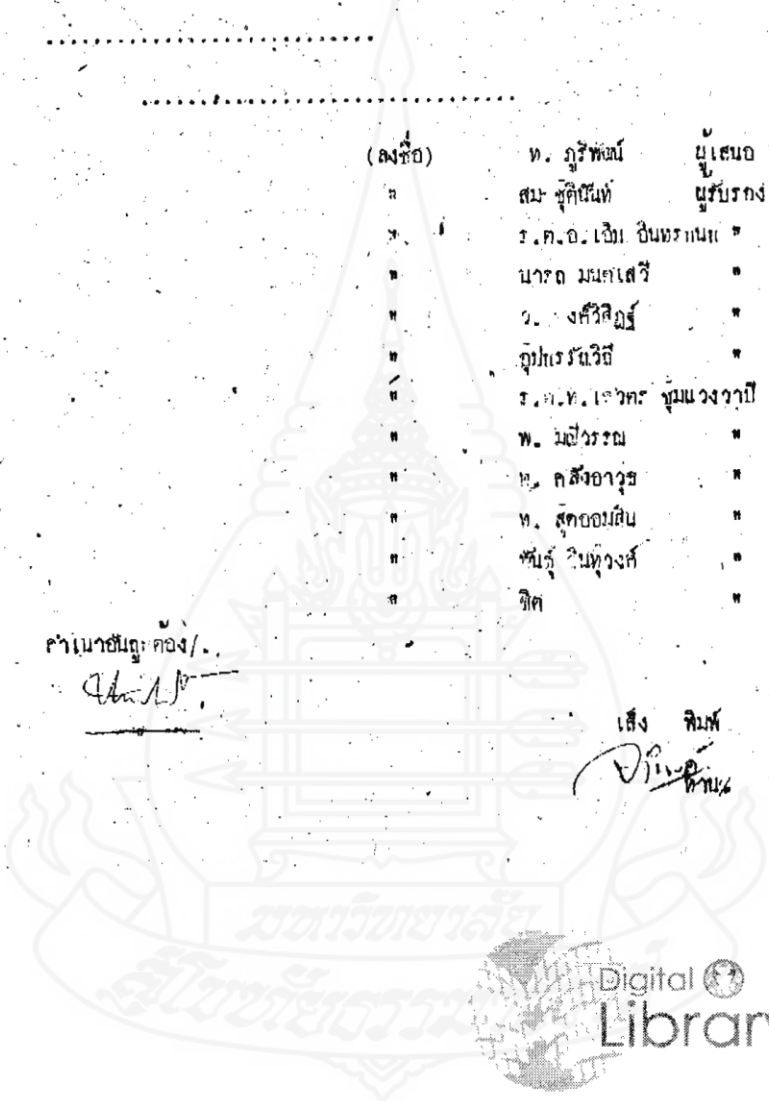 (ลงชื่อ) ท. ภูริพัฒน์ ผู้เสนอ
" สม ชุตินันท์ ผู้รับรอง
" ร.ต.อ. เอิบ อินทร "
" นารถ มนตเสวี "
" ว. งศ์วิสิฎฐ์ "
" "
" ร.ต.ท. ชุ่มแวงวาปี
" พ. มณีวรรณ "
" ท. คลังอาวุธ "
" ท. สุดออมสิน "
" พันธุ์ อินทุวงศ์ "
" ชิต "
สำเนาอันถูกต้อง/.
เส็ง พิมพ์
ทาน
มหาวิทยาลัย
สุโขทัยธรรมาธิราช
Digital
Library